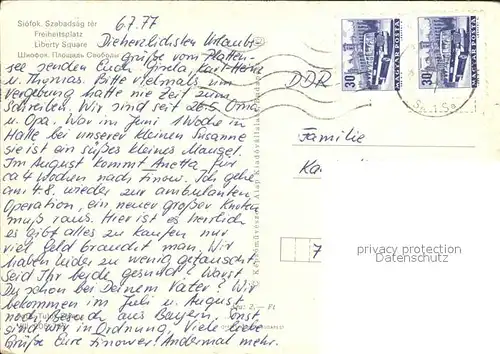 Siófok. Szabadság tér
Freiheitsplatz
Liberty Square
Шиофок. Площадь Свободы
6.7.77
Die herzlichsten Urlaubs-
grüße vom Platten-
see senden Euch Greta, Karl-Heinz
u. Thomas. Bitte vielmals um
Vergebung hatte nie Zeit zum
Schreiben. Wir sind seit 26.5. Oma
u. Opa. War im Juni 1 Woche in
Halle bei unserer kleinen Susanne
sie ist ein süßes kleines Mausel.
Im August kommt Anetta für
ca 4 Wochen nach Finow. Ich gehe
am 4.8. wieder zur ambulanten
Operation, ein neuer großer Knoten
muß raus. Hier ist es herrlich
es gibt alles zu kaufen nur
viel Geld braucht man. Wir
haben leider zu wenig getauscht.
Seid Ihr beide gesund? Warst
Du schon bei Deinem Vater? Wir
bekommen im Juli u. August
noch Besuch aus Bayern. Sonst
sind wir in Ordnung. Viele liebe
Grüße Eure Finower! Andermal mehr.
DDR
30
MAGYAR POSTA
30
MAGYAR POSTA
Familie
Ka
7
Képzőművészeti Alap Kiadóvállalata, Budapest
Ára: 2,— Ft
privacy protection
Datenschutz